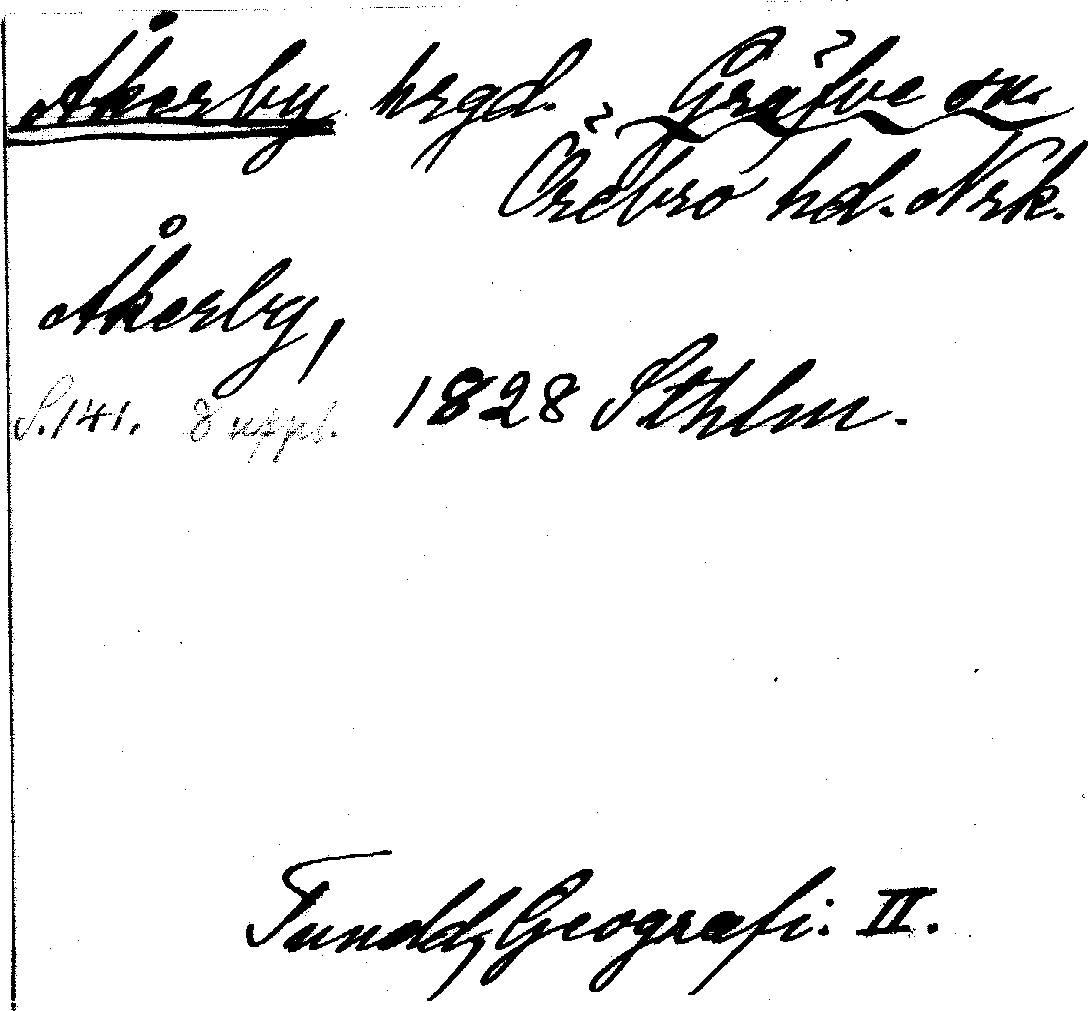 Åkerby hrgd. Gräfve sn.
Örebro hd. Nrk.
Åkerby,
S. 141. Suppl. 1828 Sthlm.
Tunéld, Geografi. II.